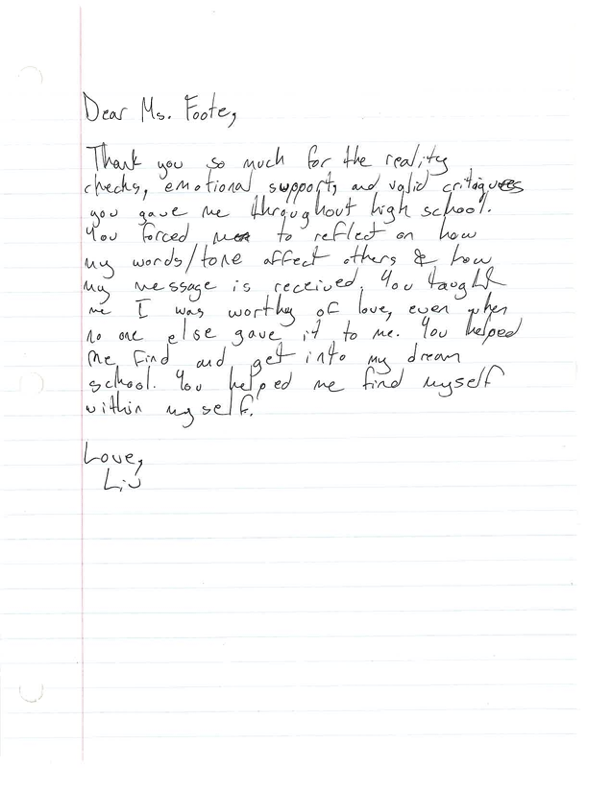 Dear Ms. Foote,
Thank you so much for the reality
checks, emotional support, and valid critiques
you gave me throughout high school.
You forced me to reflect on how
my words/tone affect others & how
my message is received. You taught
me I was worthy of love, even when
no one else gave it to me. You helped
me find and get into my dream
school. You helped me find myself
within myself.
Love,
Liv